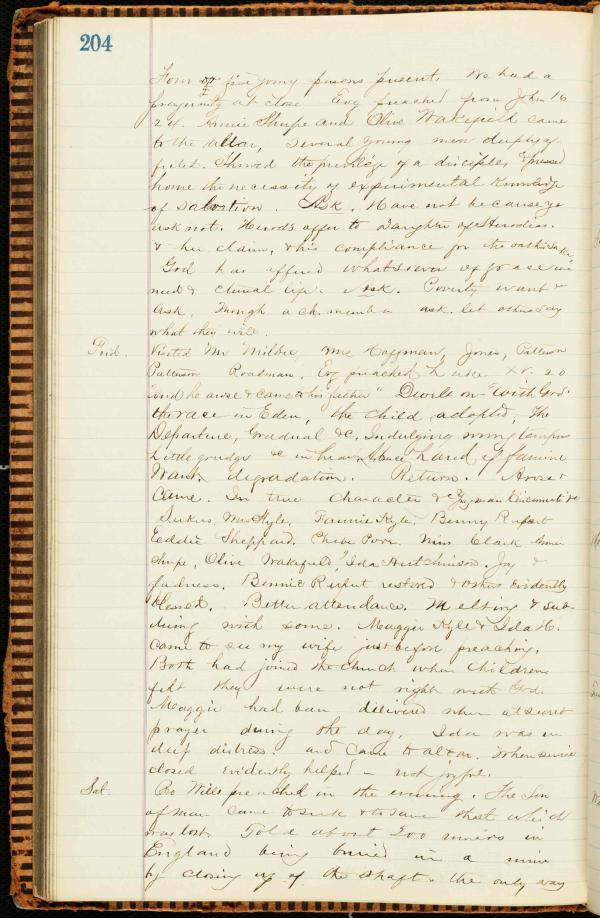 204
Four or five young persons present. We had a
at close Evg preached from John 16
24. Annie Shupe and Olive Wakefield came
to the altar, Several young men deeply af-
fected. Showed the privilege of a disciple & pressed
home the necessity of experimental knowledge
of salvation. Ask. Have not because ye
ask not. Herod's offer to Daughter of Herodias.
& her claim, & his compliance for the oath's sake
God has offered whatsoever of grace in
need & eternal life. Ask. Poverty want &
ask, though a ch. member ask. let others say
what they will.
Frid. Visited Mr Mr Hoffman, Jones, Patterson
Patterson Roadman. Evg preached Luke XV. 20
"And he arose & came to his father" Dwelt on "with God"
the race in Eden, the child adopted, The
Departure, Gradual &c. Indulging wrong tempers
Little grudges &c in heart, hence hard, of famine
Want, degradation. Return. Arose &
Came. In true character & Cincinnati &c
Seekers, Mrs Kyle, Fannie Kyle, Benny Rupert
Eeddie Sheppard. Miss Clark Annie
Shupe, Olive Wakefield, Ida Hutchinson. Joy &
gladness. Bennie Rupert restored & others evidently
blessed. Better attendance. Melting & sub-
duing with some. Maggie Kyle & Ida H.
came to see my wife just before preaching.
Both had joined the Church when Children
felt they were not right with God.
Maggie had been delivered when at secret
prayer during the day. Ida was in
deep distress and came to altar. When service
closed evidently helped – not joyful.
Sat. Bo Wills preached in the evening. The Son
of man came to seek & to save that which
was lost. Told about 200 miners in
England being buried in a mine
by closing up of the shaft. the only way